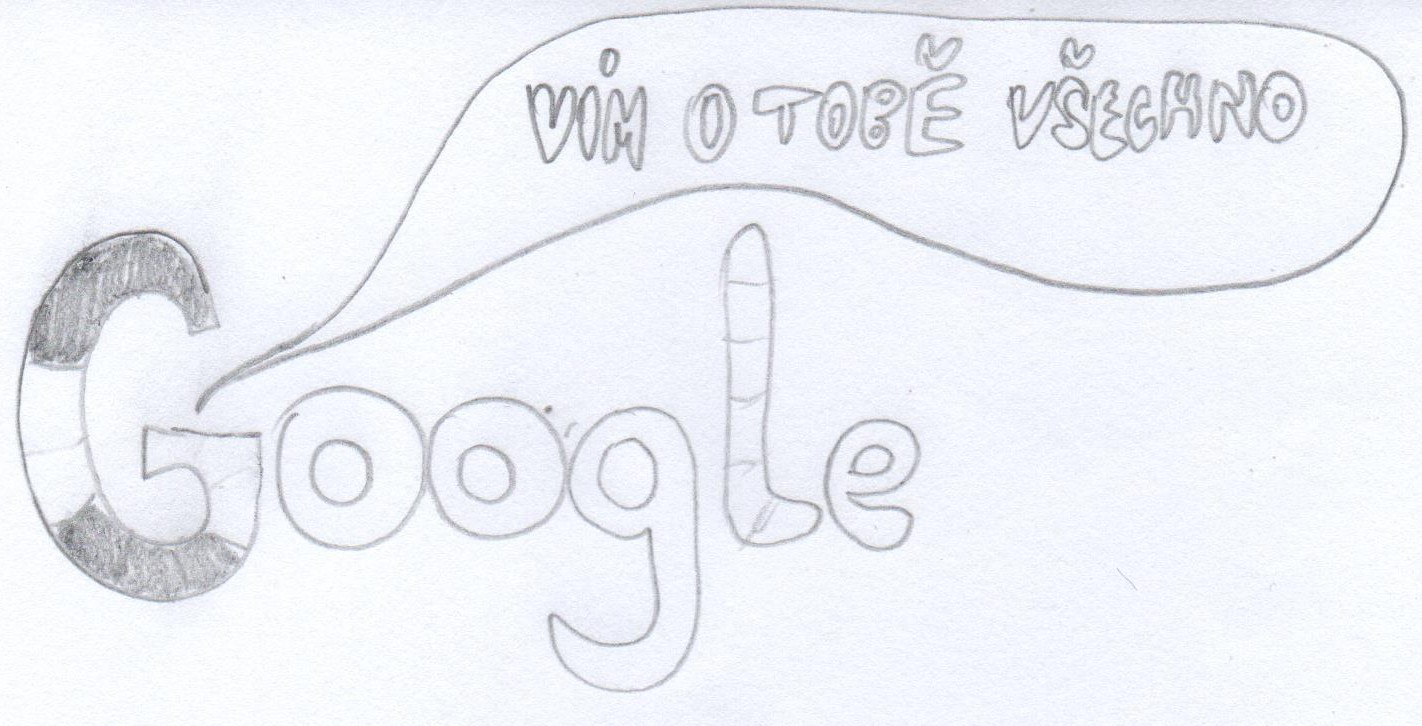 VÍM O TOBĚ VŠECHNO
Google